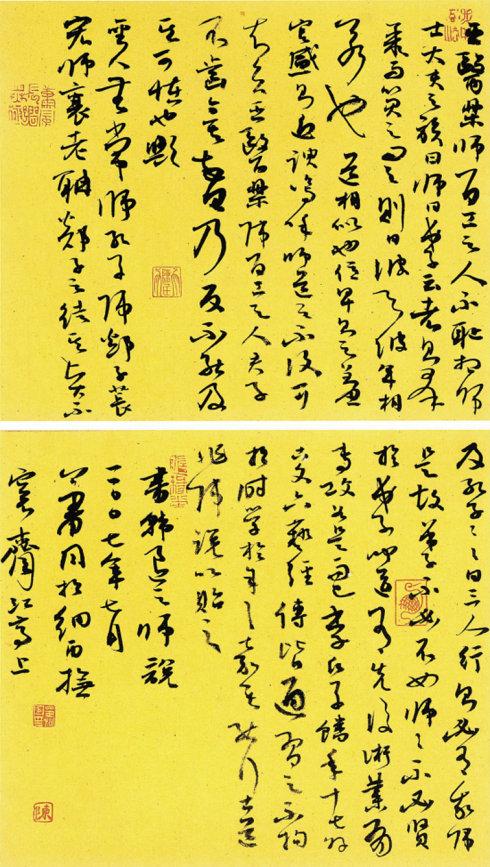 巫醫樂師百工之人不恥相師
士大夫之族曰師曰弟子云者則群
聚而笑之問之則曰彼與彼年相
若也道相似也位卑則足羞
官盛則近諛嗚呼師道之不復可
知矣巫醫樂師百工之人君子
不齒今其智乃反不能及
其可怪也歟
聖人無常師孔子師郯子萇
宏師襄老聃郯子之徒其賢不
及孔子〻曰三人行則必有我師
是故弟子不必不如師〻不必賢
於弟子聞道有先後術業有
專攻如是而已李氏子蟠年十七好
古文六藝經傳皆通習之不拘
於時學於余〻嘉其能行古道
作師說以貽之
書韓退之師說
二〇〇七年七月
同於細雨撫
齋